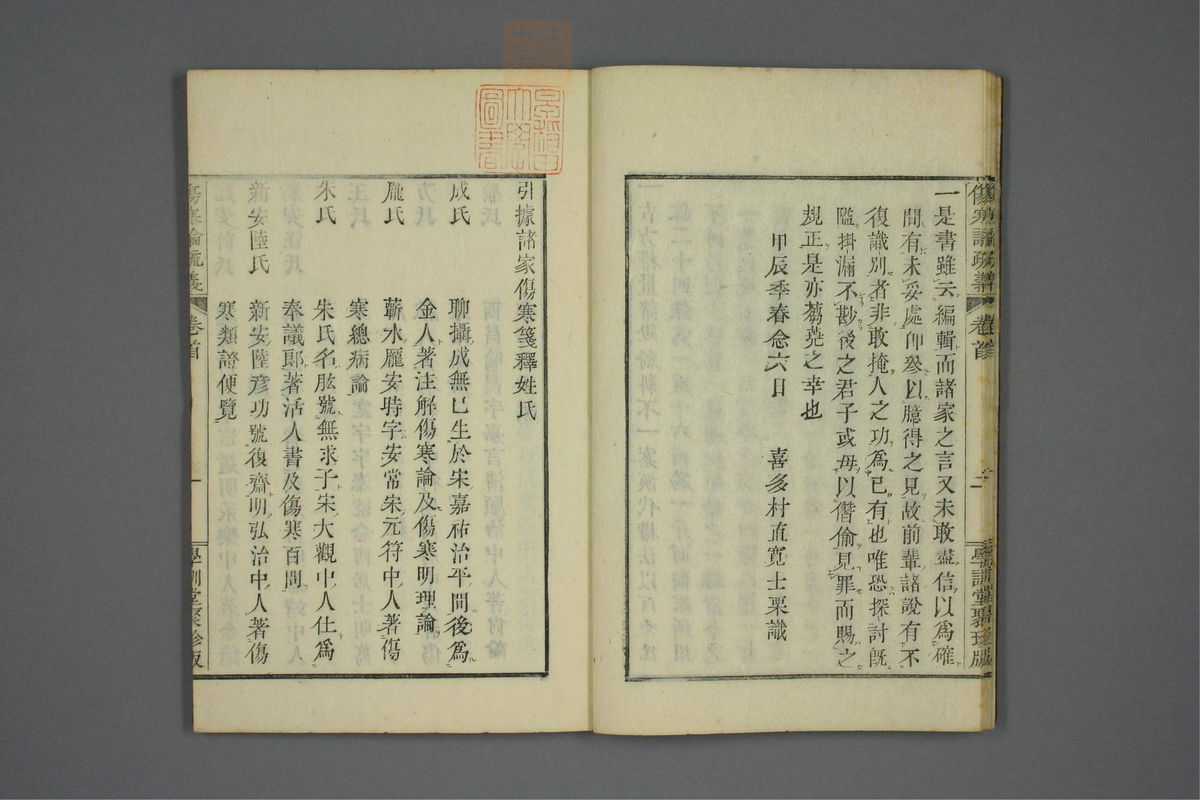 一是書雖云編輯而諸家之言又未敢盡信以爲確
間有未妥處卽參以臆得之見故前輩諸說有不
復識別者非敢掩人之功爲己有也唯恐探討旣
隘掛漏不尠後之君子或毋以僭偷見罪而賜之
規正是亦蒭蕘之幸也
甲辰季春念六日 喜多村直寬士栗識
傷寒論疏義 卷首 二 學訓堂聚珍版
引據諸家傷寒箋釋姓氏
成氏 聊攝成無已生於宋嘉祐治平間後爲
金人著注解傷寒論及傷寒明理論
龐氏 蘄水龐安時字安常宋元符中人著傷
寒總病論
朱氏 朱氏名肱號無求子宋大觀中人仕爲
奉議郎著活人書及傷寒百問
新安陸氏 新安陸彥功號復齋明弘治中人著傷
寒類證便覽
傷寒論疏義 卷首 一 學訓堂聚珍版